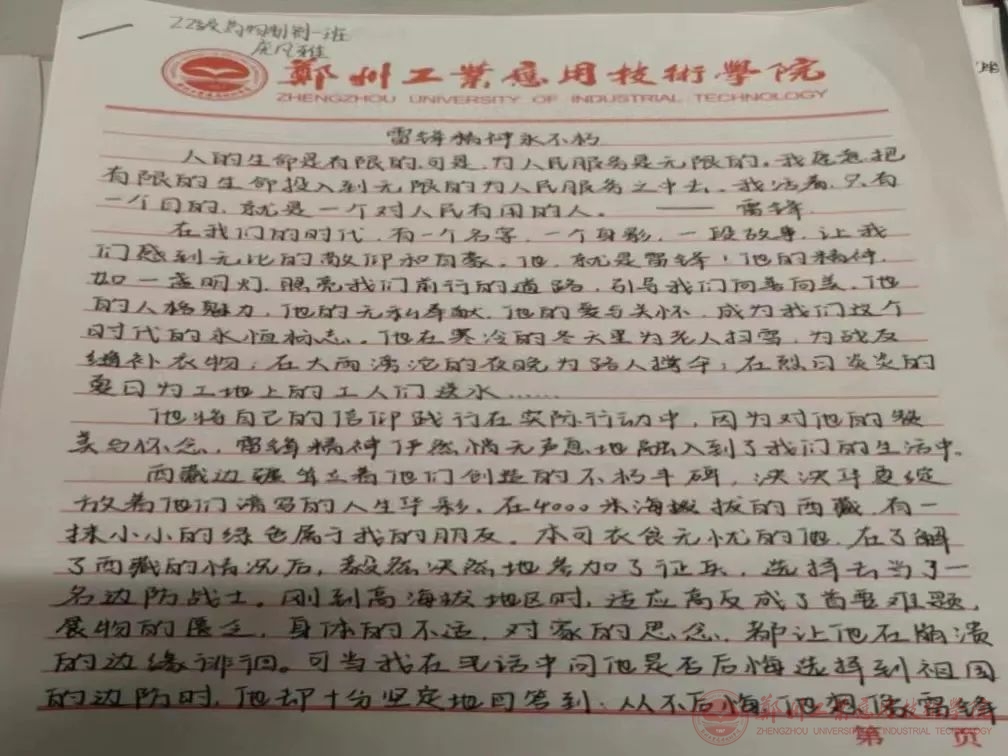 22级药物制剂一班
庞凤雅
鄭州工業應用技術學院
ZHENGZHOU UNIVERSITY OF INDUSTRIAL TECHNOLOGY
雷锋精神永不朽
人的生命是有限的,可是,为人民服务是无限的。我愿意把
有限的生命投入到无限的为人民服务之中去。我活着,只有
一个目的,就是一个对人民有用的人。 —— 雷锋
在我们的时代,有一个名字,一个身影,一段故事,让我
们感到无比的敬仰和自豪。他,就是雷锋!他的精神,
如一盏明灯,照亮我们前行的道路,引导我们向善向美。他
的人格魅力,他的无私奉献,他的爱与关怀,成为我们这个
时代的永恒标志。他在寒冷的冬天里为老人扫雪,为战友
缝补衣物;在大雨滂沱的夜晚为路人撑伞;在烈日炎炎的
夏日为工地上的工人们送水……
他将自己的信仰践行在实际行动中,因为对他的赞
美与怀念,雷锋精神伊然悄无声息地融入到了我们的生活中。
西藏边疆耸立着他们创造的不朽丰碑,泱泱华夏绽
放着他们谱写的人生华彩。在4000米海拔的西藏,有一
抹小小的绿色属于我的朋友。本可衣食无忧的他,在了解
了西藏的情况后,毅然决然地参加了征兵,选择去当了一
名边防战士。刚到高海拔地区时,适应高反成了首要难题,
展物的匮乏,身体的不适,对家的思念,都让他在崩溃
的边缘徘徊。可当我在电话中问他是否后悔选择到祖国
的边防时,他却十分坚定地回答到:从不后悔,他想像雷锋
第 页
鄭州工業應用技術學院
ZHENGZHOU UNIVERSITY OF INDUSTRIAL TECHNOLOGY